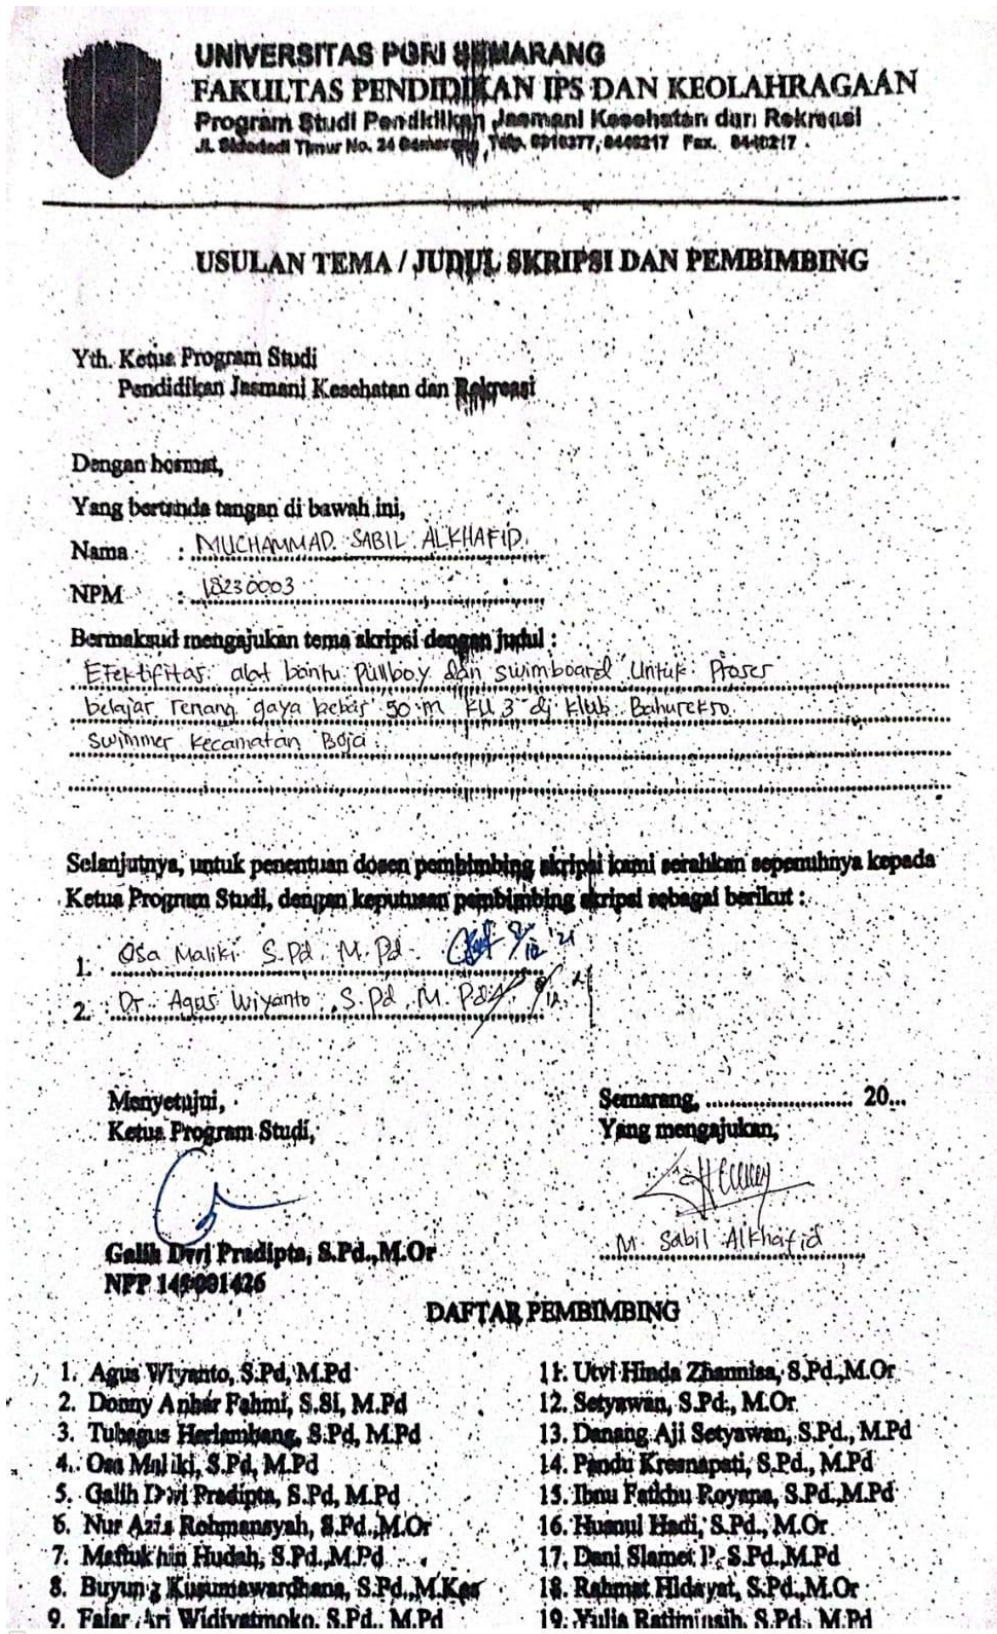 UNIVERSITAS PGRI SEMARANG
FAKULTAS PENDIDIKAN IPS DAN KEOLAHRAGAAN
Program Studi Pendidikan Jasmani Kesehatan dan Rekreasi
Jl. Sidodadi Timur No. 24 Semarang, Telp. 8316377, 8448217 Fax. 8448217
USULAN TEMA / JUDUL SKRIPSI DAN PEMBIMBING
Yth. Ketua Program Studi
Pendidikan Jasmani Kesehatan dan Rekreasi
Dengan hormat,
Yang bertanda tangan di bawah ini,
Nama : MUCHAMMAD SABIL ALKHAFID
NPM : 18230003
Bermaksud mengajukan tema skripsi dengan judul :
Efektifitas alat bantu Pullboy dan swimboard Untuk Proses
belajar renang gaya bebas 50 m KU 3 di klub Bahurekso
Swimmer Kecamatan Boja
Selanjutnya, untuk penentuan dosen pembimbing skripsi kami serahkan sepenuhnya kepada
Ketua Program Studi, dengan keputusan pembimbing skripsi sebagai berikut :
1. Osa Maliki S.Pd, M.Pd
2. Dr. Agus Wiyanto, S.Pd, M.Pd
Menyetujui,
Ketua Program Studi,
Galih Dwi Pradipta, S.Pd.,M.Or
NPP 149001426
Semarang, ........................ 20...
Yang mengajukan,
M. Sabil Alkhafid
DAFTAR PEMBIMBING
1. Agus Wiyanto, S.Pd, M.Pd
2. Donny Anhar Fahmi, S.Si, M.Pd
3. Tubagus Herlambang, S.Pd, M.Pd
4. Osa Maliki, S.Pd, M.Pd
5. Galih Dwi Pradipta, S.Pd, M.Pd
6. Nur Azis Rohmansyah, S.Pd.,M.Or
7. Maftukhin Hudah, S.Pd.,M.Pd
8. Buyung Kusumawardhana, S.Pd.,M.Kes
9. Fajar Ari Widiyatmoko, S.Pd., M.Pd
11. Utvi Hinda Zhannisa, S.Pd.,M.Or
12. Setyawan, S.Pd., M.Or
13. Danang Aji Setyawan, S.Pd., M.Pd
14. Pandu Kresnapati, S.Pd., M.Pd
15. Ibnu Fatkhu Royana, S.Pd.,M.Pd
16. Husnul Hadi, S.Pd., M.Or
17. Dani Slamet P, S.Pd.,M.Pd
18. Rahmat Hidayat, S.Pd.,M.Or
19. Yulia Ratimiasih, S.Pd., M.Pd